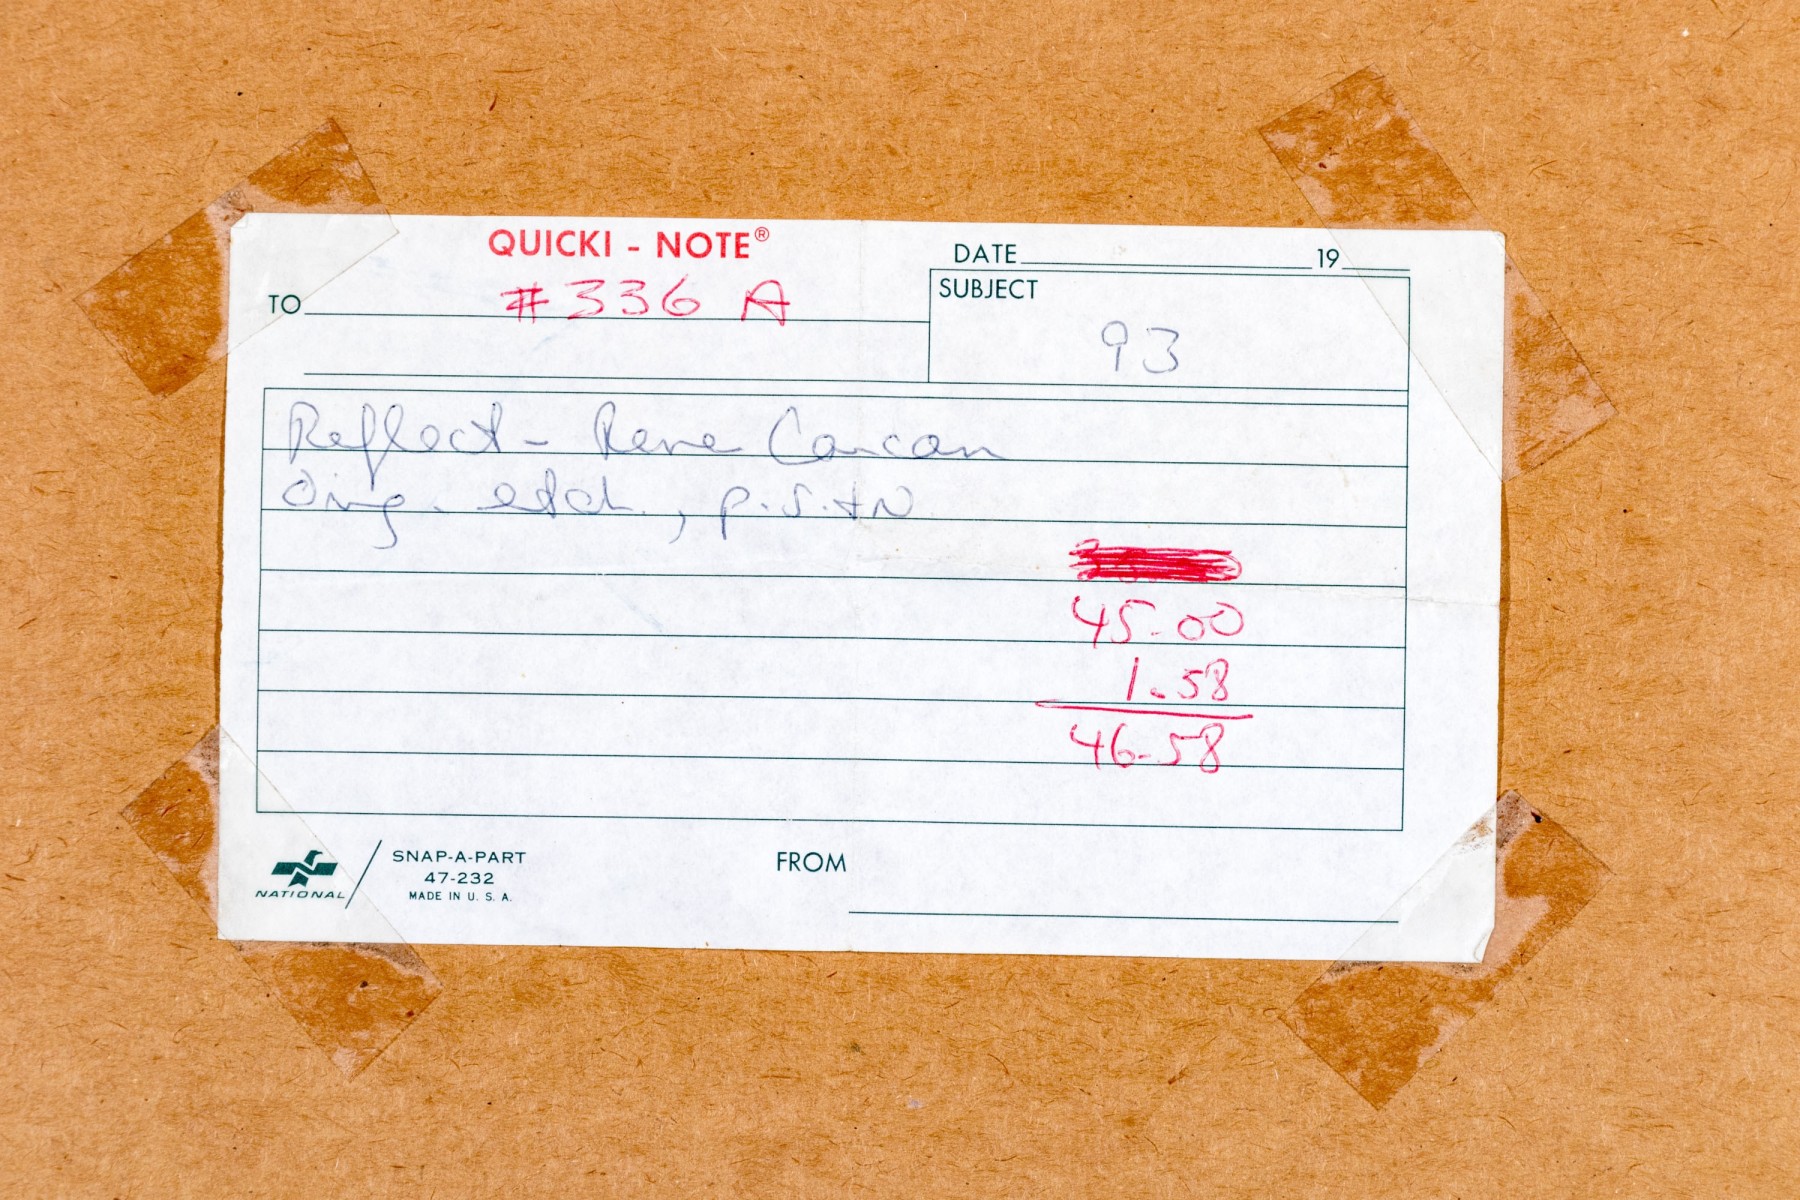 QUICKI - NOTE®
DATE 19
TO #336 A
SUBJECT
93
Reflect - Rene Carcan
Orig. etch., p.S.+N
45.00
1.58
46.58
NATIONAL
SNAP-A-PART
47-232
MADE IN U. S. A.
FROM